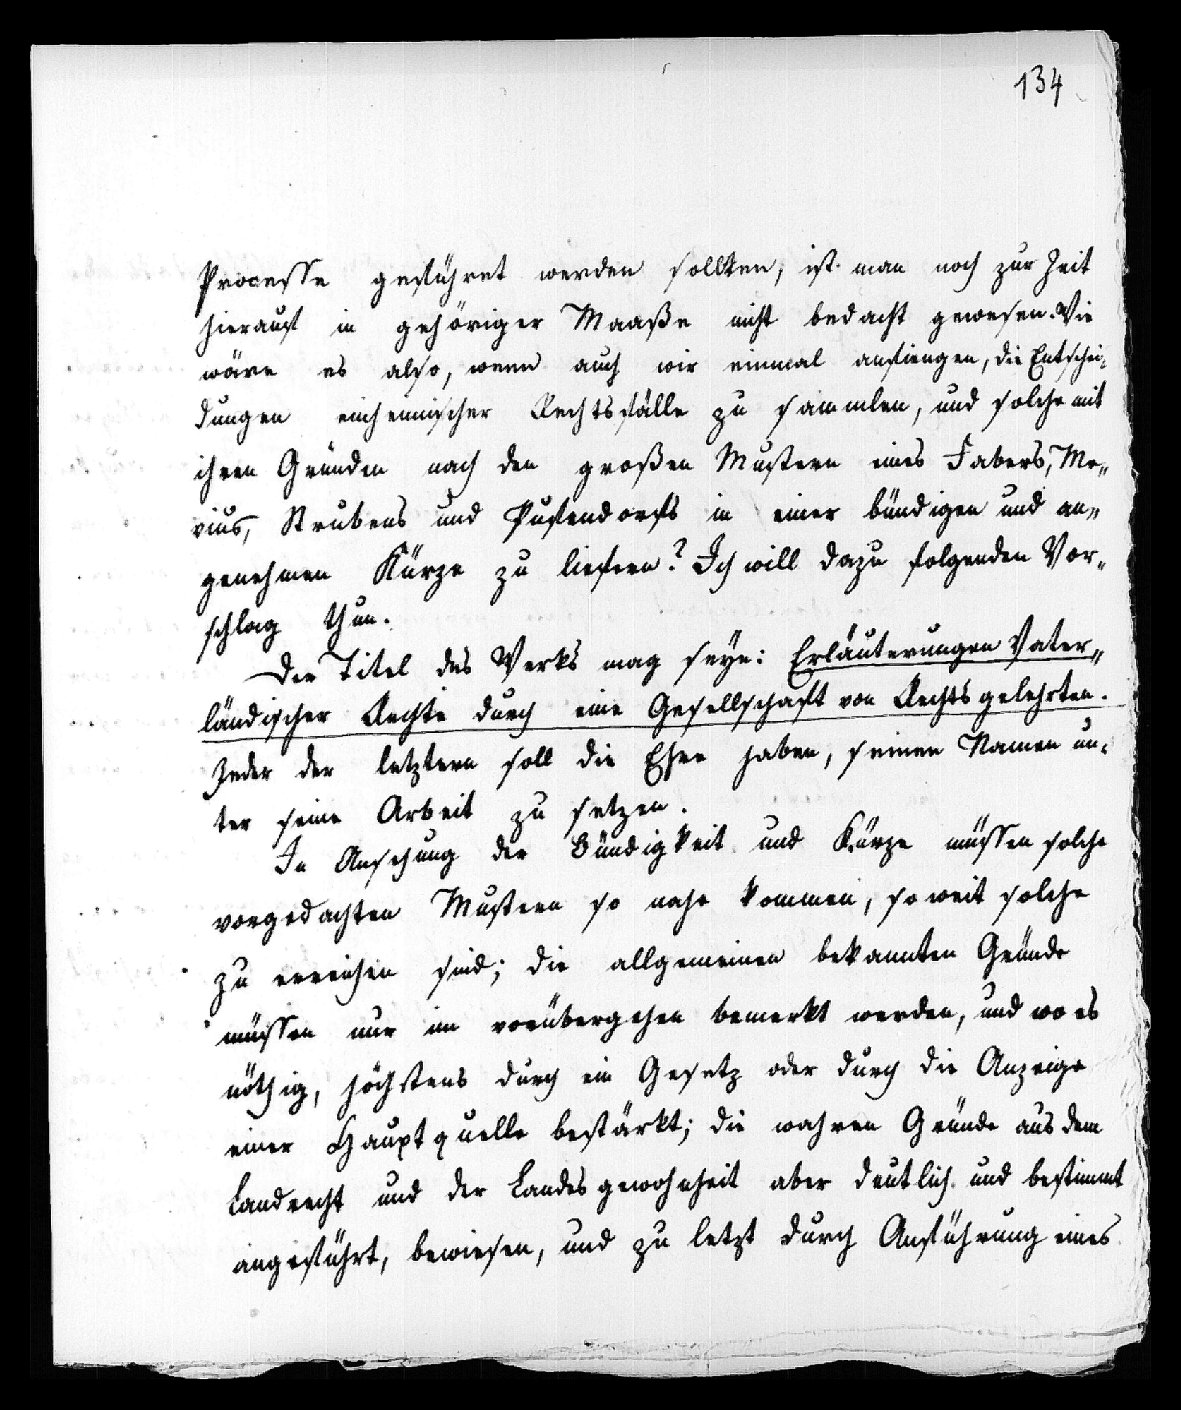 134
Processe geführet werden sollten, ist man noch zur Zeit
hierauf in gehöriger Maaße nicht bedacht gewesen. Wie
wäre es also, wenn auch wir einmal anfiengen, die Entschei-
dungen einheimischer Rechtsfälle zu sammlen, und solche mit
ihren Gründen nach den großen Mustern eines Fabers, Me„
vius, Strubens und Pufendorfs in einer bündigen und an„
genehmen Kürze zu liefern? Ich will dazu folgenden Vor„
schlag thun.
Der Titel des Werks mag seyn: Erläuterungen Vater„
ländischer Rechte durch eine Gesellschaft von Rechtsgelehrten.
Jeder der letztern soll die Ehre haben, seinen Namen un-
ter seine Arbeit zu setzen.
In Ansehung der Bündigkeit und Kürze müssen solche
vorgedachten Mustern so nahe kommen, so weit solche
zu erreichen sind; die allgemeinen bekannten Gründe
müssen nur im vorübergehen bemerkt werden, und wo es
nöthig, höchstens durch ein Gesetz oder durch die Anzeige
einer Hauptquelle bestärkt; die wahren Gründe aus dem
Landrecht und der Landesgewohnheit aber deutlich und bestimmt
angeführt, bewiesen, und zu letzt durch Anführung eines